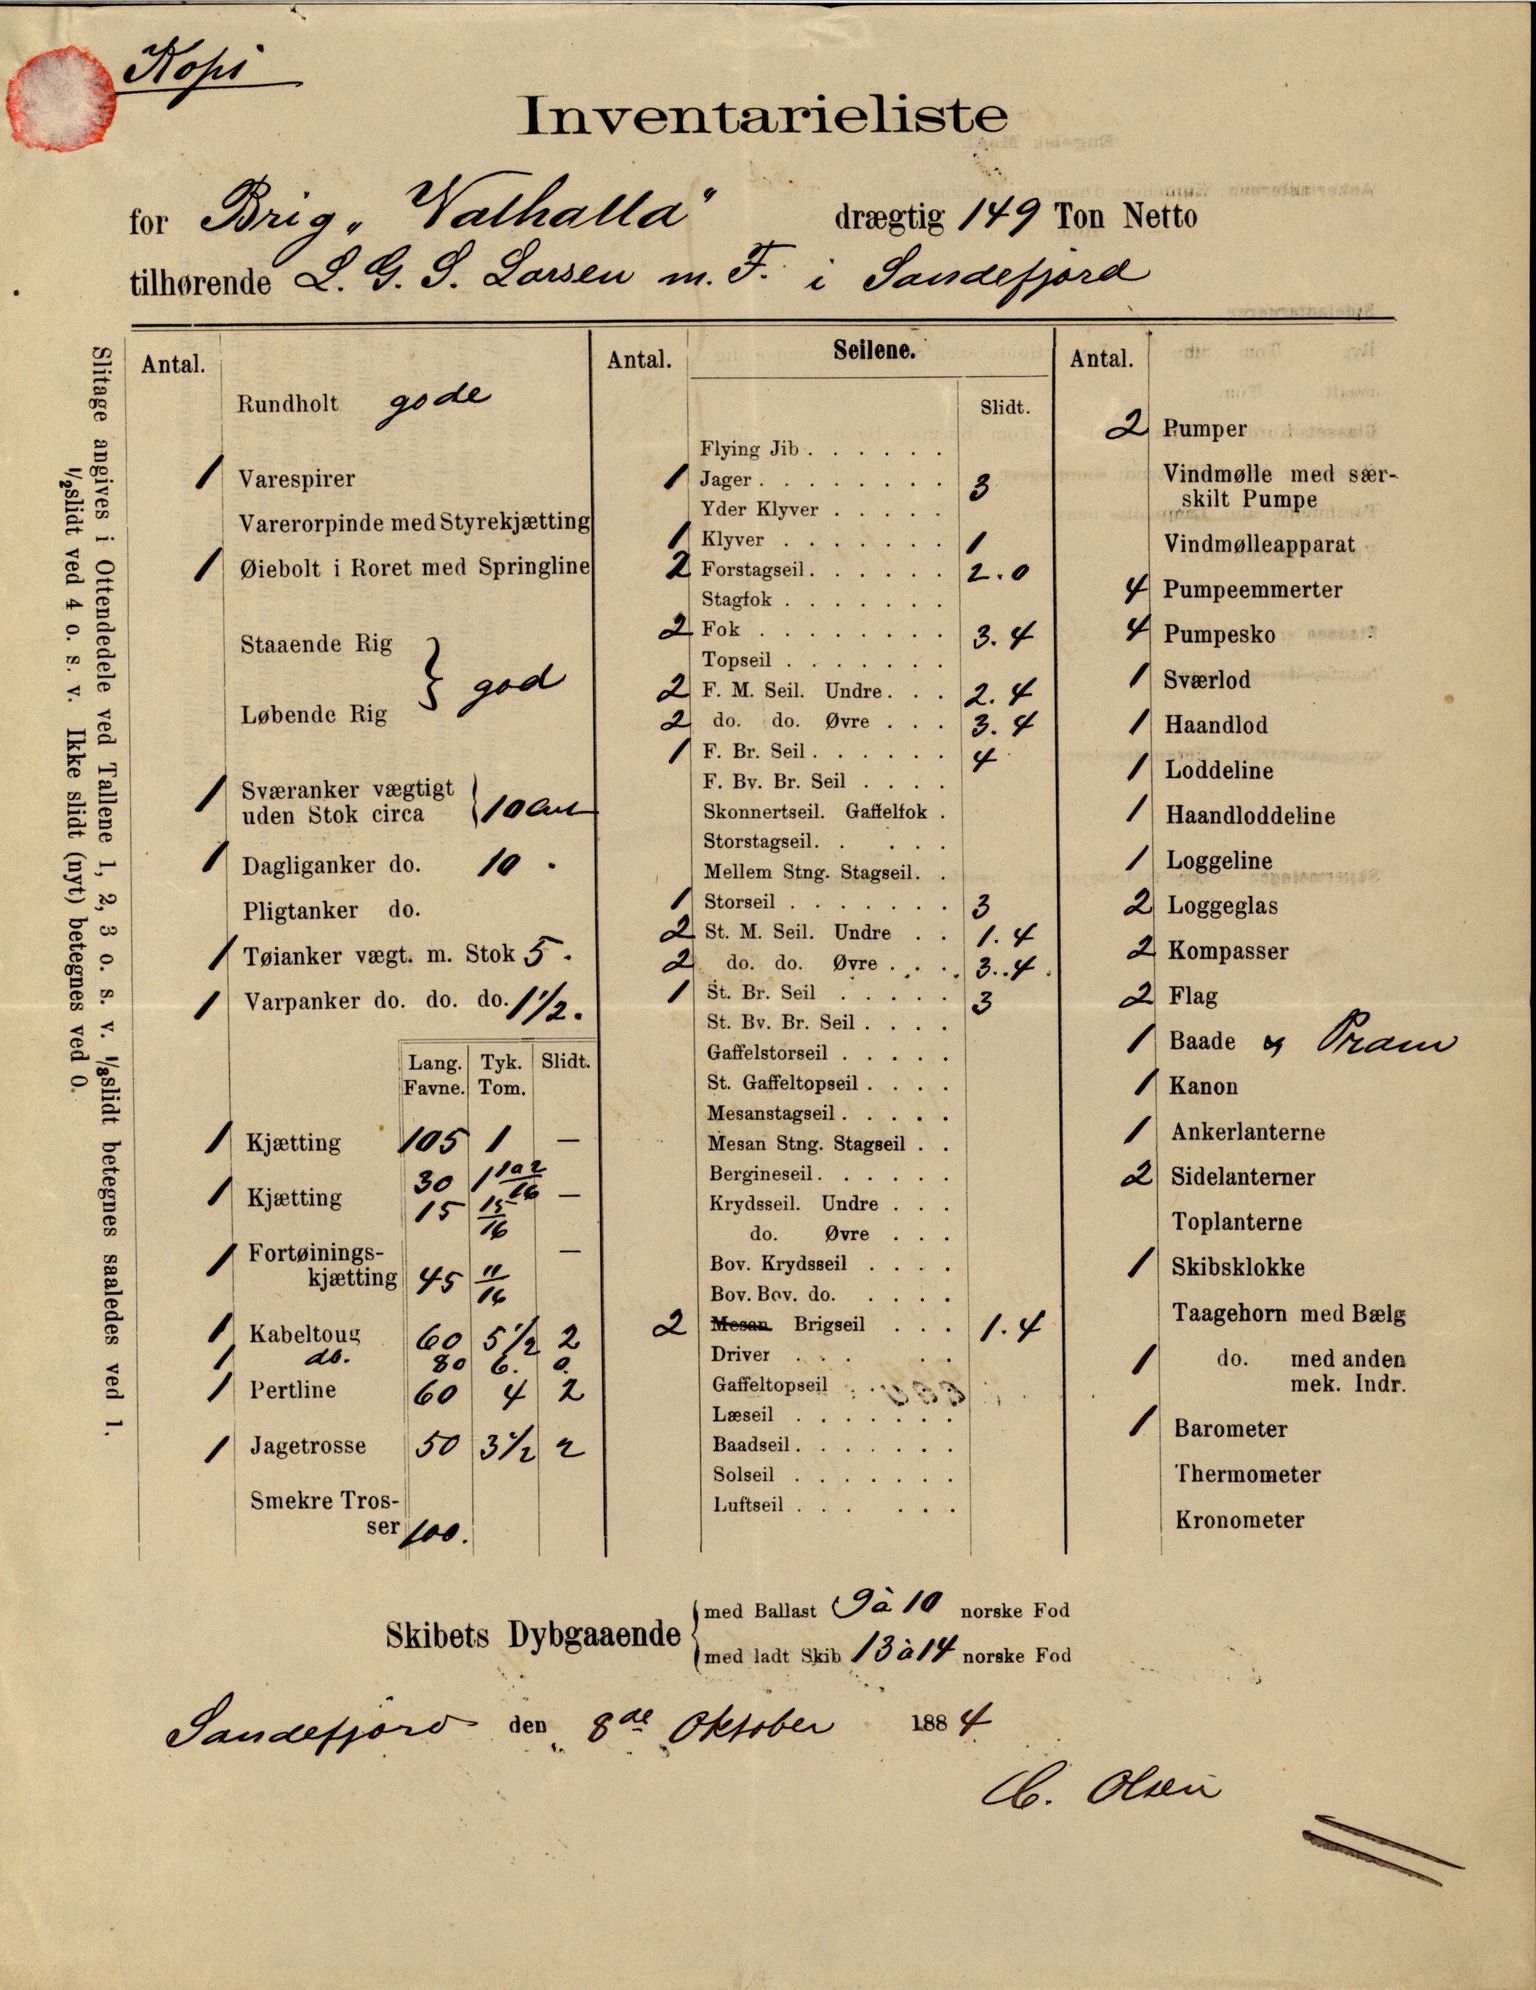 Kopi
Inventarieliste
for Brig „Valhalla" drægtig 149 Ton Netto
tilhørende L. G. S. Larsen m. F. i Sandefjord
Slitage angives i Ottendedele ved Tallene 1, 2, 3 o. s. v. ⅛slidt betegnes saaledes ved 1.
½slidt ved 4 o. s. v. Ikke slidt (nyt) betegnes ved 0.
Antal.
Rundholt gode
1 Varespirer
Varerorpinde med Styrekjætting
1 Øiebolt i Roret med Springline
Staaende Rig
} god
Løbende Rig
1 Sværanker vægtigt
uden Stok circa } 10
1 Dagliganker do. 10 .
Pligtanker do.
1 Tøianker vægt. m. Stok 5 .
1 Varpanker do. do. do. 1½ .
Lang. Tyk. Slidt.
Favne. Tom.
1 Kjætting 105 1 —
1 Kjætting 30 1 —
15 15/16
1 Fortøinings- —
kjætting 45 11/16
1 Kabeltoug 60 5½ 2
1 do. 80 6. 0.
1 Pertline 60 4 2
1 Jagetrosse 50 3½ 2
Smekre Tros-
ser 100.
Antal. Seilene.
Slidt.
Flying Jib . . . . . .
1 Jager . . . . . . . . 3
Yder Klyver . . . . .
1 Klyver . . . . . . . 1
2 Forstagseil . . . . . . 2.0
Stagfok . . . . . . .
2 Fok . . . . . . . . 3.4
Topseil . . . . . . .
2 F. M. Seil. Undre . . . 2.4
2 do. do. Øvre . . . 3.4
1 F. Br. Seil . . . . . . 4
F. Bv. Br. Seil . . . .
Skonnertseil. Gaffelfok .
Storstagseil. . . . .
Mellem Stng. Stagseil. .
1 Storseil . . . . . . . 3
2 St. M. Seil. Undre . . 1.4
2 do. do. Øvre . . . . 3.4.
1 St. Br. Seil . . . . . 3
St. Bv. Br. Seil . . . .
Gaffelstorseil . . . . .
St. Gaffeltopseil . . . .
Mesanstagseil . . . . .
Mesan Stng. Stagseil . .
Bergineseil. . . . . .
Krydsseil. Undre . . .
do. Øvre . . .
Bov. Krydsseil . . . .
Bov. Bov. do. . . . .
2 Mesan Brigseil . . . 1.4
Driver . . . . .
Gaffeltopseil . .
Læseil . . . . . . .
Baadseil . . . . . . .
Solseil . . . . . . .
Luftseil . . . . . .
Antal.
2 Pumper
Vindmølle med sær-
skilt Pumpe
Vindmølleapparat
4 Pumpeemmerter
4 Pumpesko
1 Sværlod
1 Haandlod
1 Loddeline
1 Haandloddeline
1 Loggeline
2 Loggeglas
2 Kompasser
2 Flag
1 Baade og Pram
1 Kanon
1 Ankerlanterne
2 Sidelanterner
Toplanterne
1 Skibsklokke
Taagehorn med Bælg
1 do. med anden
mek. Indr.
1 Barometer
Thermometer
Kronometer
Skibets Dybgaaende { med Ballast 9 à 10 norske Fod
med ladt Skib 13 à 14 norske Fod
Sandefjord den 8de Oktober 1884
C. Olsen